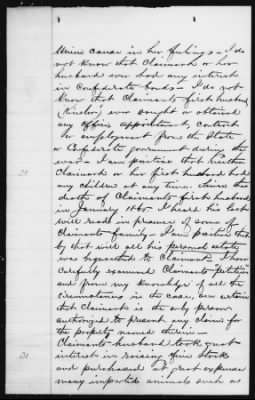 Union cause in her feelings – I do
not know that Claimant or her
husband ever had any interest
in Confederate bonds – I do not
know that Claimants first husband
ever sought or obtained
any office, appointment, contract
or employment from the State
or Confederate government during the
war – I am positive that neither
Claimant or her first husband had
any children at any time. Since the
death of Claimants first husband
in January 1865 I heard his last
will read in presence of some of
Claimants family – I am positive that
by that will all his personal estate
was bequeathed to Claimant. I have
carefully examined Claimants "petition"
and from my knowledge of all the
circumstances in the case, am certain
that Claimant is the only person
authorized to present any claim for
the property named therein –
Claimants husband took great
interest in raising fine stock
and purchased at great expense
many imported animals such as